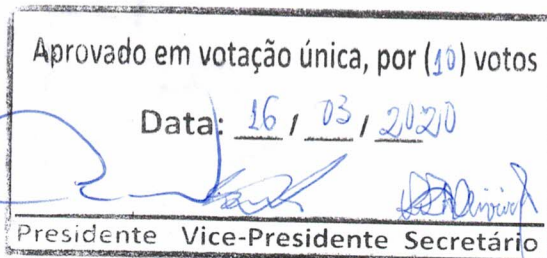 Aprovado em votação única, por (10) votos
Data: 16 / 03 / 2020
Presidente Vice-Presidente Secretário